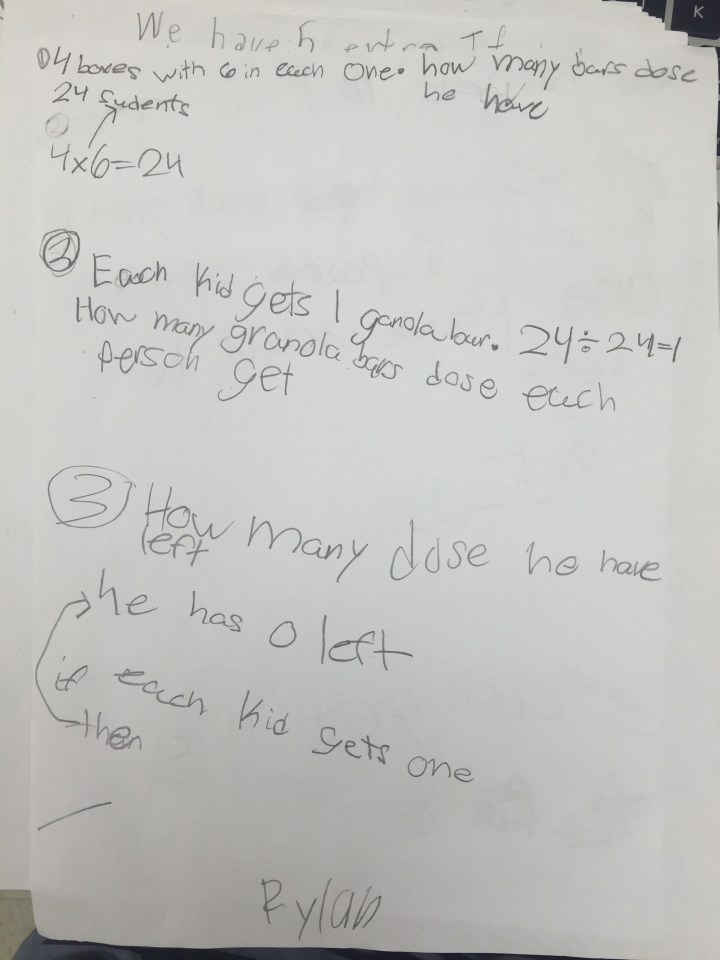 We have 5 extra If
① 4 boxes with 6 in each one. how many bars dose
he have
24 sudents
②
4x6=24
② Each kid gets 1 ganola bar. 24÷24=1
How many granola bars dose each
person get
③ How many dose he have
left
he has 0 left
if each kid gets one
then
Rylab